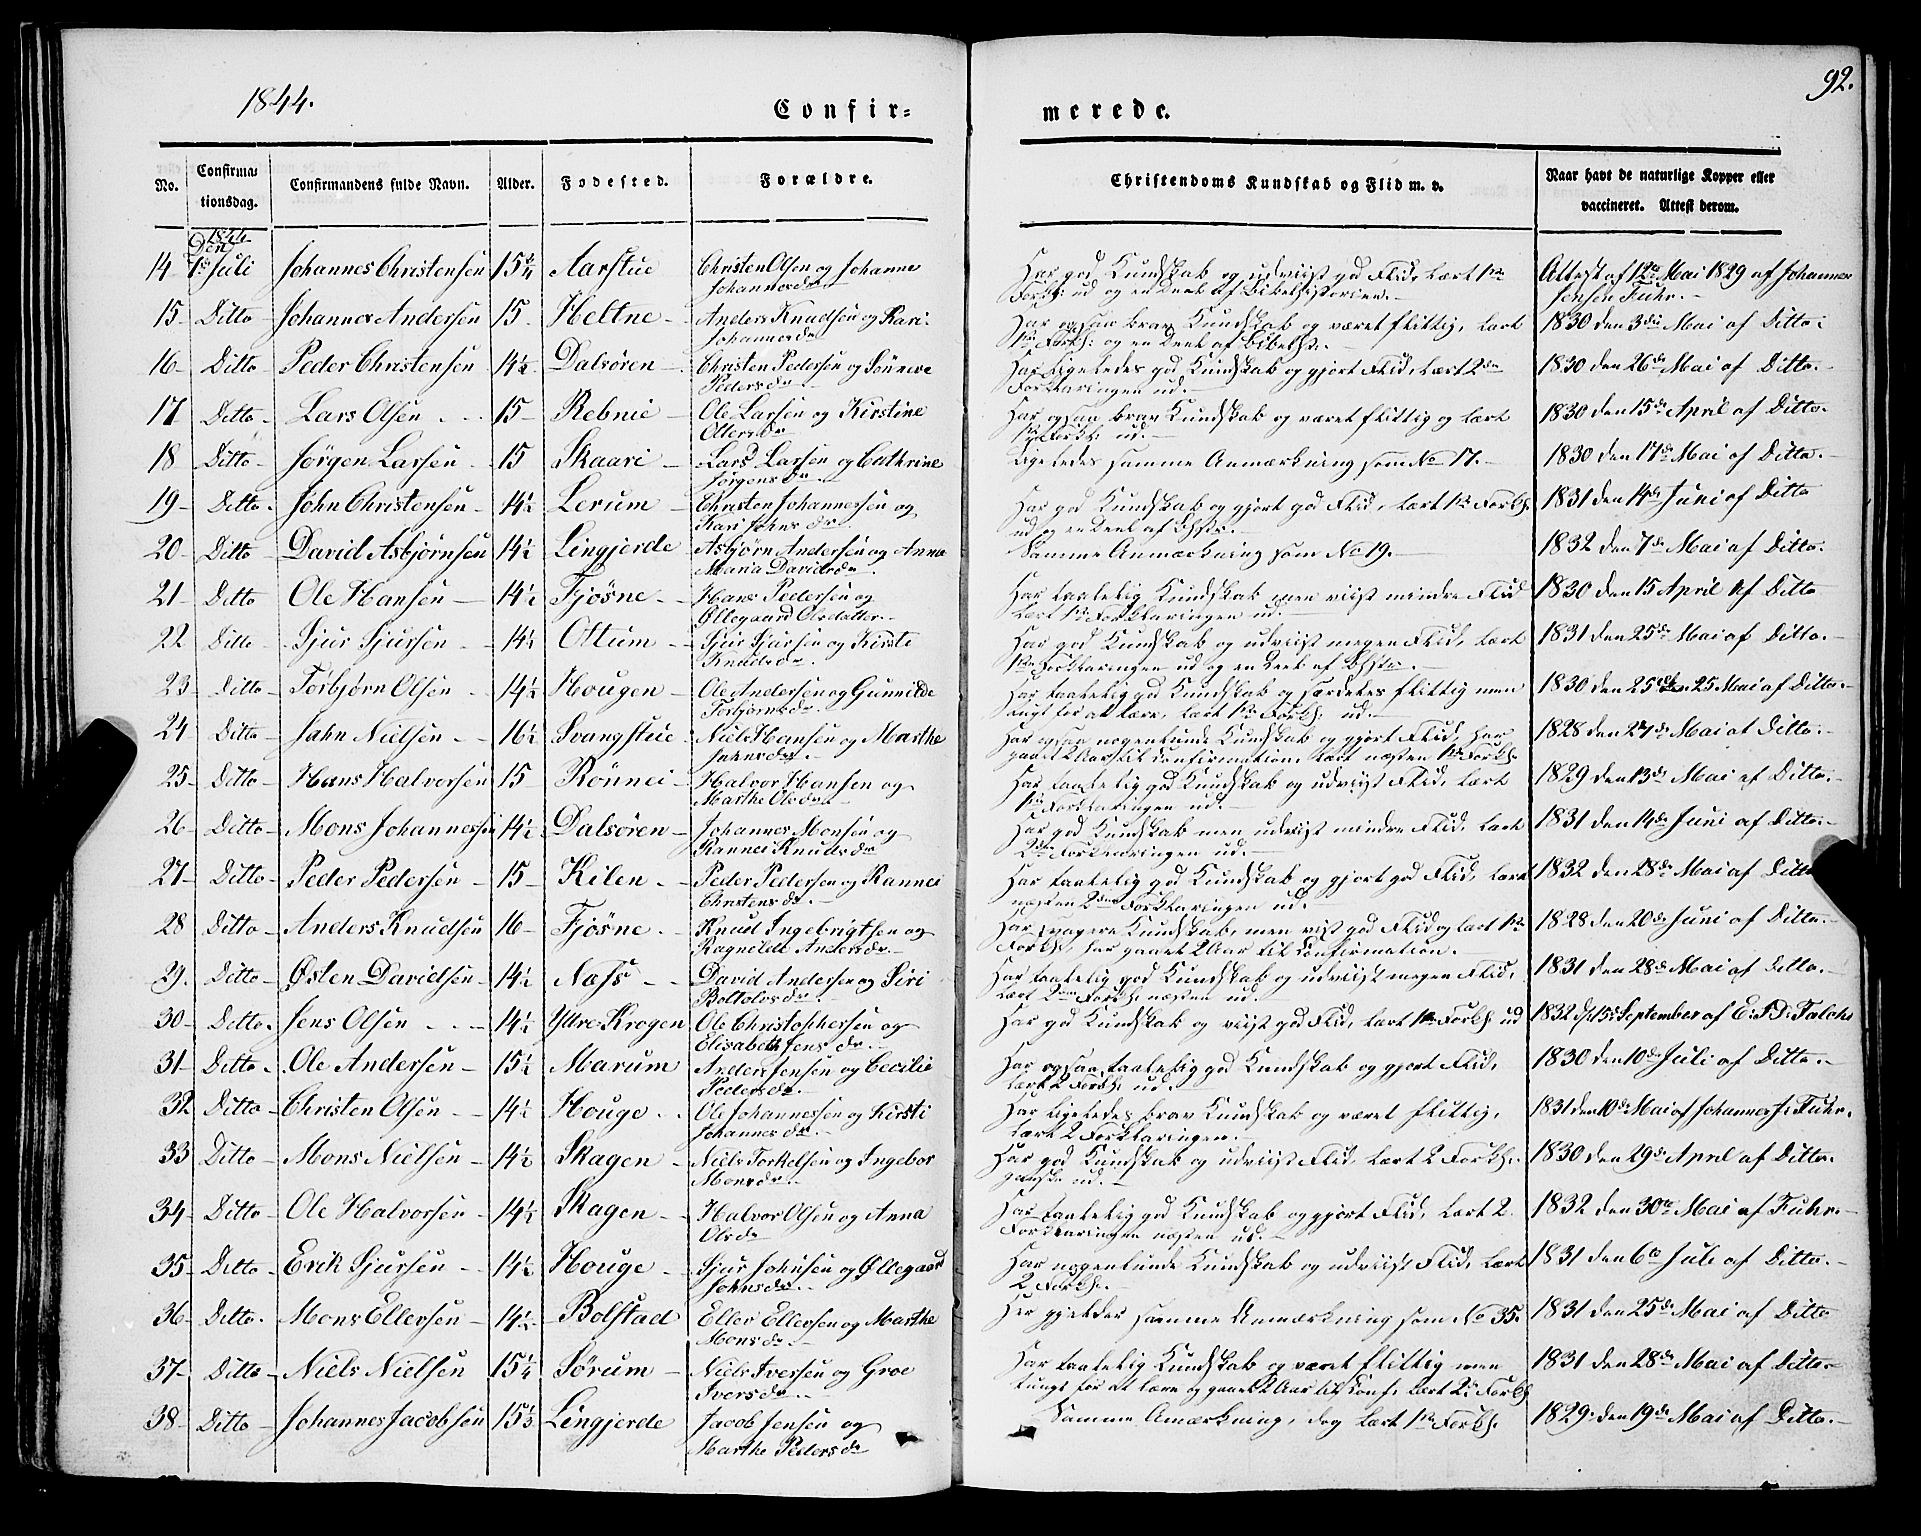 1844.
Confir=
merede.
92.
No.
Confirma
tionsdag.
Confirmandens fulde Navn.
Alder.
Fødested.
Forældre.
Christendoms Kundskab og Flid m. v.
Naar havt de naturlige Kopper eller
vaccineret. Attest derom.
1844
Den
14 1ste Juli Johannes Christensen 15 3/4 Aarstue Christen Olsen og Johanne Har god Kundskab og udviist god Flid, lært 1ste Attest af 12te Mai 1829 af Johannes
Johannesdr Forkl: ud og en Deel af Bibelhistorien.- Jensen Fuhr.-
15- Ditto- Johannes Andersen 15- Heltne- Anders Knudsen og Kari Har ogsaa brav Kundskab og været flittig, lært 1830 den 3die Mai af Ditto-
Johannesdr 1ste Forkl: og en Deel af Bibelh:-
16- Ditto- Peder Christensen 14½ Dalsören- Christen Pedersen og Sönneve Har ligeledes god Kundskab og gjort Flid, lært 2den 1830 den 26de Mai af Ditto.-
Pedersdr Forklaringen ud.-
17 Ditto- Lars Olsen - 15- Rebnie- Ole Larsen og Kirstine Har ogsaa brav Kundskab og været flittig og lært 1830 den 15de April af Ditto-
1ste Forkl: ud.-
18 Ditto- Jørgen Larsen- 15 Skaari- Lars Larsen og Cathrine Ligeledes samme Anmærkning som No 17.- 1830 den 17de Mai af Ditto.-
Jørgensdr
19- Ditto- John Christensen- 14½ Lerum- Christen Johannessen og Har god Kundskab og gjort god Flid, lært 1ste Forkl: 1831 den 14de Juni af Ditto
Kari Johnsdr- ud og en Deel af Bhst:-
20- Ditto- David Asbjørnsen 14½ Lingjerde Asbjørn Andersen og Anna Samme Anmærkning som No 19.- 1832 den 7de Mai af Ditto-
Maria Davidsdr-
21- Ditto Ole Hansen- 14½ Fjösne- Hans Pedersen og Har taalelig Kundskab men viist mindre Flid 1830 den 15 April af Ditto
Øllegaard Olsdatter- lært 1ste Forklaringen ud.-
22 Ditto- Sjur Sjursen- 14½ Ottum- Sjur Sjursen og Kirsti Har god Kundskab og udviist megen Flid, lært 1831 den 25de Mai af Ditto.-
Knudsdr- 1ste Forklaringen ud og en Deel af Bhst:-
23- Ditto- Torbjørn Olsen- 14½ Hougen- Ole Andersen og Gunnilde Har taalelig god Kundskab og særdeles flittig men 1830 den 25 Mai af Ditto.-
Torbjørnsdr- tungt for at lære, lært 1ste Forkl: ud.-
24 Ditto- Jahn Nielsen- 16½ Svangstue- Niels Hansen og Marthe Har ogsaa nogenlunde Kundskab og gjort Flid, har 1828 den 27de Mai af Ditto.-
Jahnsdr- gaaet 2 Aar til Confirmation, lært næsten 1ste Forkl:
25- Ditto- Hans Halvorsen 15- Rönnei- Halvor Hansen og Har taalelig god Kundskab og udviist Flid, lært 1829 den 13de Mai af Ditto.-
Marthe Olsdr- 1ste Forklaringen ud.-
26- Ditto- Mons Johannessen 14½ Dalsören- Johannes Monsen og Har god Kundskab men udviist mindre Flid, lært 1831 den 14de Juni af Ditto.-
Rannei Knudsdr 2den Forklaringen ud.-
27- Ditto- Peder Pedersen- 15- Kilen- Peder Pedersen og Rannei Har taalelig god Kundskab og gjort god Flid, lært 1832 den 28de Mai af Ditto
Christensdr- næsten 2den Forklaringen ud.-
28 Ditto- Anders Knudsen 16- Fjösne- Knud Ingebrigtsen og Har svagere Kundskab, men viist god Flid og lært 1ste 1828 den 20de Juni af Ditto.-
Ragnilde Andersdr- Forkl:, har gaaet 2 Aar til Confirmation.-
29. Ditto- Østen Davidsen- 14½ Næss- David Andersen og Siri Har taalelig god Kundskab og udviist megen Flid, 1831 den 28de Mai af Ditto.-
Boltolvsdr- lært 2den Forkl: næsten ud.-
30- Ditto- Jens Olsen- 14½ Yttre Krogen Ole Christophersen og Har god Kundskab og viist god Flid, lært 1ste Forkl: ud 1832 d. 15: September af E. D. Falch
Elisabeth Jensdr-
31- Ditto- Ole Andersen- 15½ Marum Anders Jensen og Cecilie Har ogsaa taalelig god Kundskab og gjort Flid, 1830 den 10de Juli af Ditto.-
Pedersdr- lært 2 Forkl: ud.-
32 Ditto- Christen Olsen- 14½ Houge- Ole Johannessen og Kirsti Har ligeledes brav Kundskab og været flittig, 1831 den 10de Mai af Johannes J. Fuhr.
Johannesdr- lært 2 Forklaringen.-
33 Ditto- Mons Nielsen- 14½ Skagen- Niels Torkelsen og Ingebor Har god Kundskab og udviist Flid, lært 2 Forkl: 1830 den 29de April af Ditto.
Monsdr- ganske ud.-
34- Ditto- Ole Halvorsen- 14½ Skagen- Halvor Olsen og Anna Har taalelig god Kundskab og gjort Flid, lært 2 1832 den 30te Mai af Fuhr.-
Olsdr Forklaringen næsten ud.-
35- Ditto- Erik Sjursen- 14½ Houge- Sjur Johnsen og Øllegaard Har nogenlunde Kundskab og udviist Flid, lært 1831 den 6te Juli af Ditto.-
Johnsdr- 2 Forkl:-
36- Ditto- Mons Ellersen- 14½- Bolstad Eller Ellersen og Marthe samme Anmærkning som No 35. 1831 den 25de Mai af Ditto
Monsdr-
37- Ditto- Niels Nielsen 15¼ Sørum- Niels Iversen og Groe Har taalelig Kundskab og været flittig men 1831 den 28de Mai af Ditto.-
Iversdr- tungt for at lære og gaaet 2 Aar til Conf: lært 2: Forkl:
38- Ditto- Johannes Jacobsen 15⅓ Lingjerde Jacob Jensen og Samme Anmærkning, dog lært 1ste Forkl: 1829: den 19de Mai af Ditto.-
Marthe Pedersdr